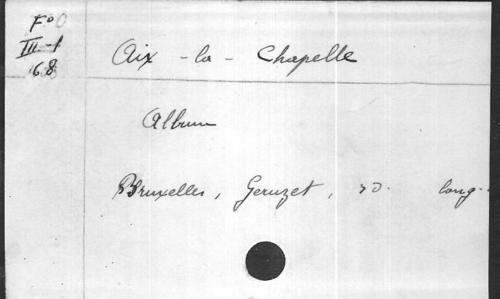 F°
III-1
68
Aix-la-Chapelle
Album
Bruxelles, Geruzet, SD. long.